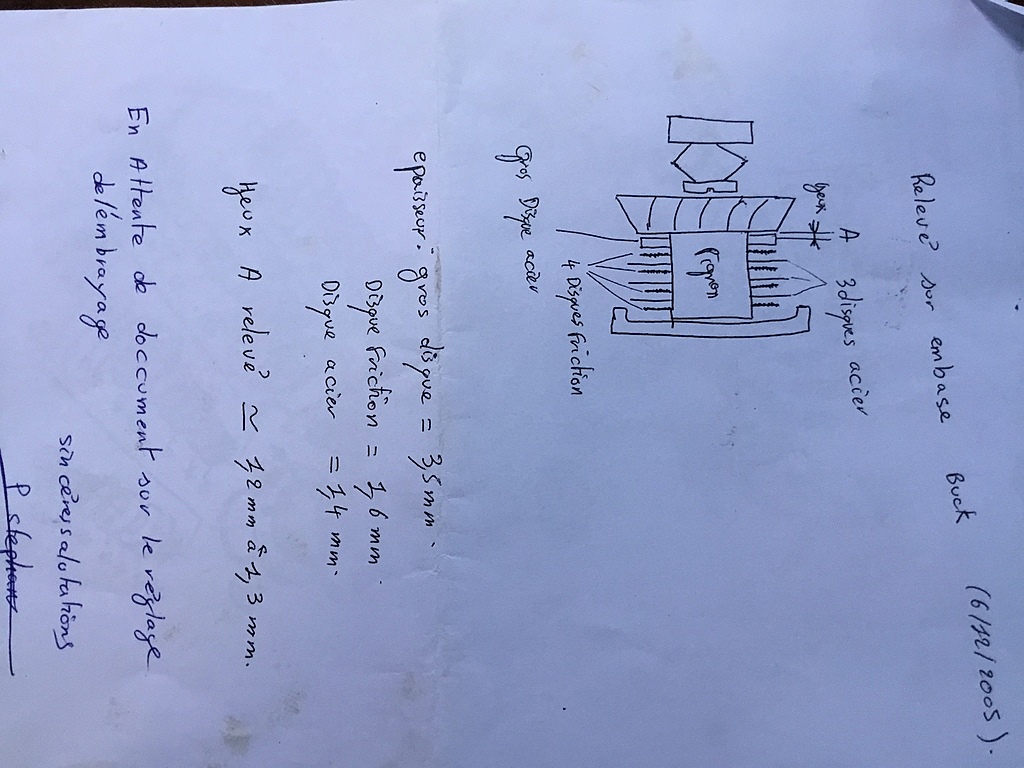 Relevé sur embase Buck (6/12/2005).
jeux A
3 disques acier
Pignon
4 Disques Friction
Gros Disque acier
epaisseur: gros disque = 3,5 mm.
Disque Friction = 1,6 mm.
Disque acier = 1,4 mm.
Jeux A relevé ≃ 1,2 mm à 1,3 mm.
En Attente de doccument sur le réglage
de l'émbrayage
sincères salutations
P Stephane